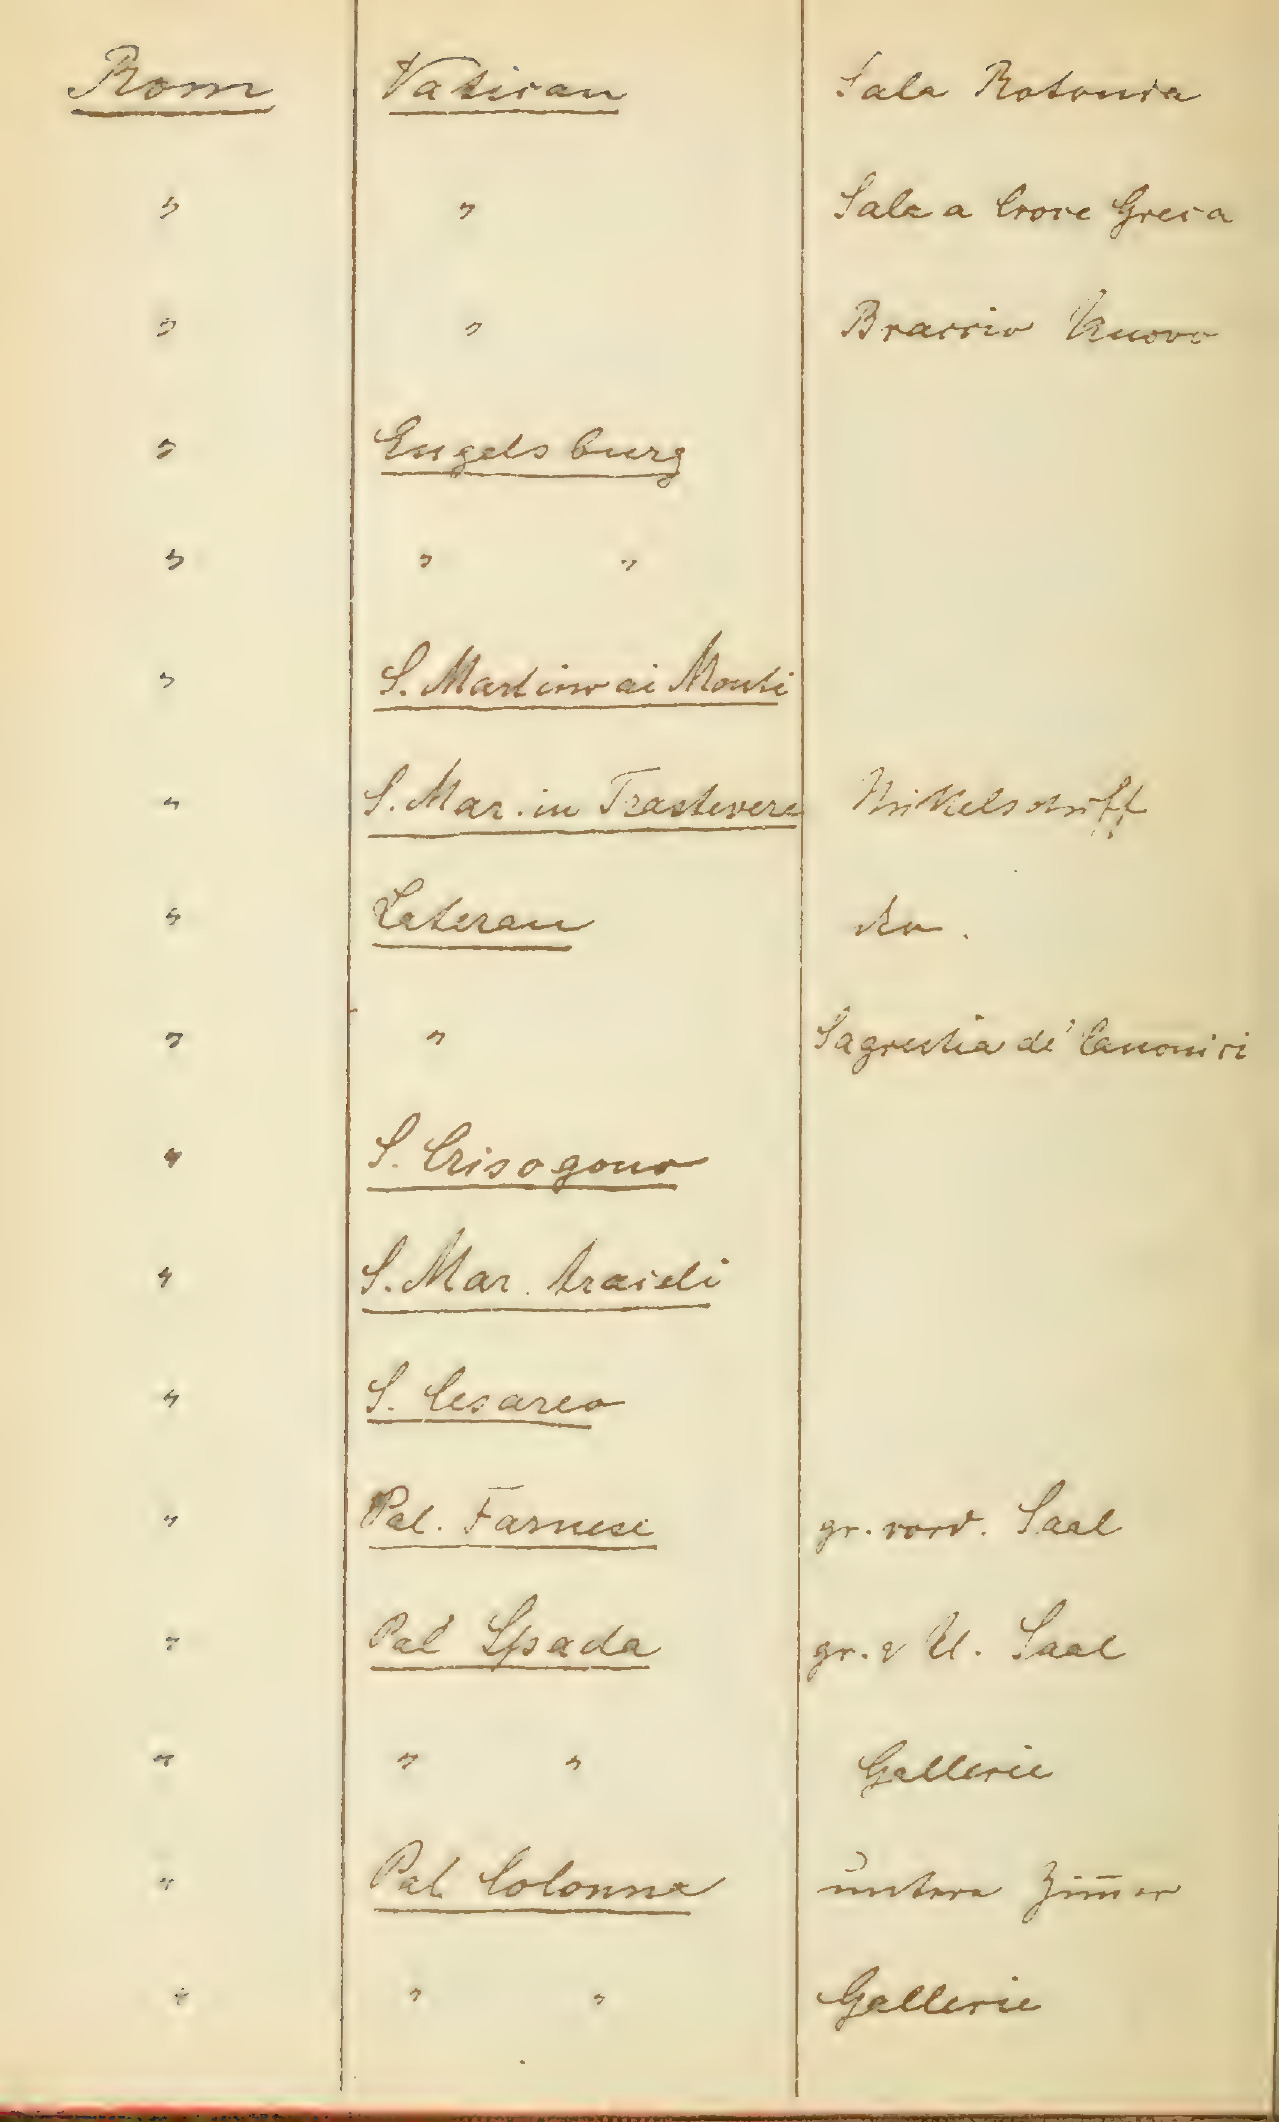 Rom Vatican Sala Rotonda
" " Sala a Croce Greca
" " Braccio Nuovo
" Engelsburg
" " "
" S. Martino ai Monti
" S. Mar. in Trastevere Mittelschiff
" Lateran do.
" " Sagrestia de' Canonici
" S. Crisogono
" S. Mar. Aracoeli
" S. Cesareo
" Pal. Farnese gr. vord. Saal
" Pal Spada gr. & kl. Saal
" " " Gallerie
" Pal. Colonna untere Zim̄er
" " " Gallerie